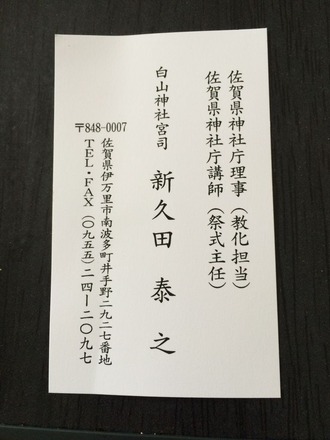 佐賀県神社庁理事（教化担当）
佐賀県神社庁講師（祭式主任）
白山神社宮司　新久田　泰之
〒848-0007
佐賀県伊万里市南波多町井手野二九二七番地
TEL・FAX（〇九五五）二四ー二〇九七